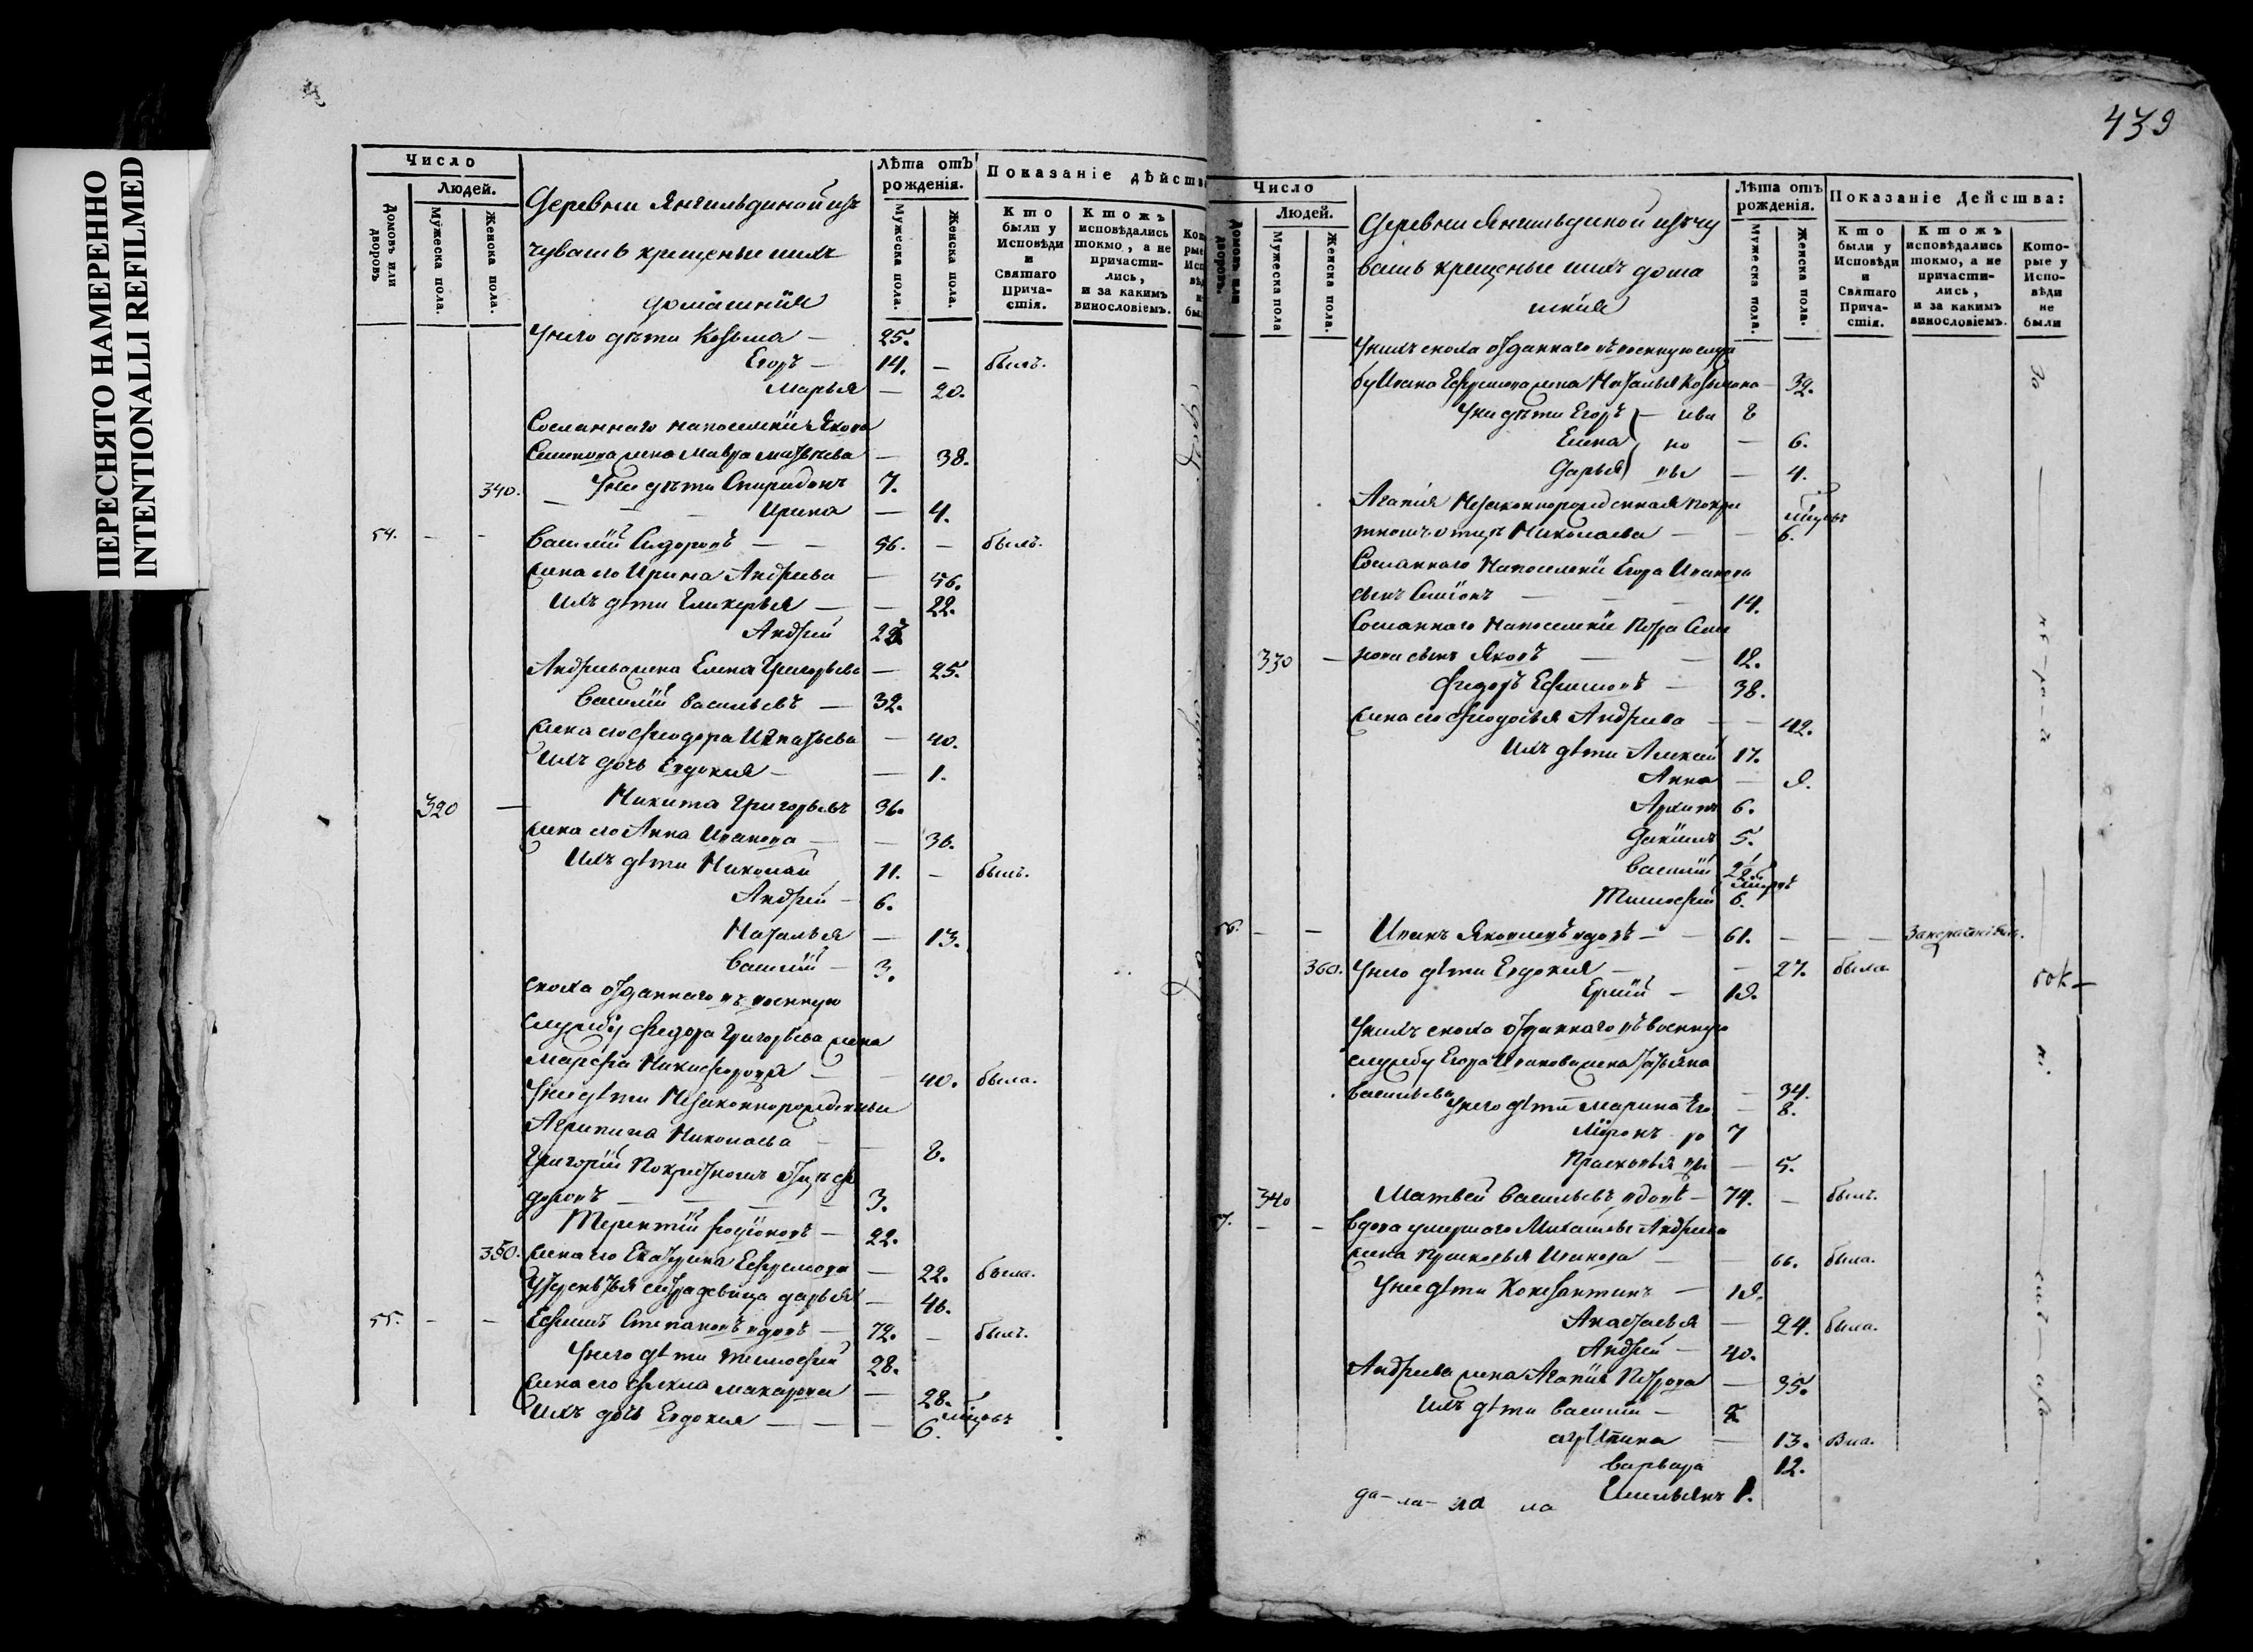 ПЕРЕСНЯТО НАМЕРЕННО
INTENTIONALLI REFILMED
Число
Людей.
Домовъ или дворовъ
Мужеска пола.
Женска пола.
Деревни Янгильдиной изъ
чувашъ крещеные и ихъ
домашнія
Лѣта отъ рожденія.
Мужеска пола.
Женска пола.
Показаніе дѣйств
Кто были у Исповѣди и Святаго Причастія.
Ктожъ исповѣдались токмо, а не причастились, и за какимъ винословіемъ.
У него дѣти Козьма — 25.
Егоръ — 14. — былъ.
Марья — 20.
Сосланнаго на поселеніи Якова
Семенова жена Мавра Матвѣева — 38.
340. У нее дѣти Спиридонъ 7.
Ирина — 4.
54. - - Василій Сидоровъ — — 56. — былъ.
жена его Ирина Андреева — 56.
Ихъ дѣти Гликерья — — 22.
Андрей
Андрея жена Елена Григорьева — 25.
Василій Васильевъ — 32.
жена его Феодора Игнатьева — 40.
Ихъ дочь Евдокия — — 1.
320 — Никита Григорьевъ 36.
жена его Анна Иванова — — 36.
Ихъ дѣти Николай 11. — былъ.
Андрей — 6.
Наталья — 13.
Василій — 3.
сноха отданнаго въ военную
службу Федора Григорьева жена
Марфа Никифорова — — 40. была.
У нее дѣти Незаконнорожденные
Агрипина Николаева — — 8.
Григорій По крестномъ отцѣ Фе
доровъ — — — 3.
Терентій Родіоновъ — 22.
350. жена его Екатерина Ефремова — 22. была.
сестра девица дарья — 46.
55. - - Ефимъ Степановъ вдовъ — 72. — былъ.
У него дѣти Тимофей 28.
жена его Фекла Макарова — 28.
Ихъ дочь Евдокия — — — 6. мѣсяцовъ
439
Число
Людей.
Домовъ или дворовъ.
Мужеска пола
Женска пола.
Деревни Янгильдиной изъ чу
вашъ крещеные и ихъ дома
шнія
Лѣта отъ рожденія.
Мужеска пола.
Женска пола.
Показаніе Действа:
Кто были у Исповѣди и Святаго Причастія.
Ктожъ исповѣдались токмо, а не причастились, и за какимъ винословіемъ.
Которые у Исповѣди не были
У нихъ сноха отданнаго въ военную служ
бу Ивана Ефремова жена Наталья Козьмина — 32.
У ни дѣти Егоръ — Ива 8
Елена но — 6.
Дарья вы — 4.
Агапія Незаконнорожденная по кре
тномъ отцѣ Николаева — — 6.
Сосланнаго На поселеніи Егора Иванова
сынъ Семіонъ — — — 14.
Сосланнаго На поселеніи Петра Семе
330 — нова сынъ Яковъ — — 12.
Федоръ Ефимовъ — 38.
жена его Феодосья Андреева — — 42.
Ихъ дѣти Алексей 17.
Анна — 9.
Архипъ 6.
Данiилъ 5.
Василій
Тимофей 6.
56. - - Иванъ Яковлевъ вдовъ — — 61. — — —
360. У него дѣти Евдокия — — 27. была
Ермій — 19.
У нихъ сноха отданнаго въ военную
службу Егора Иванова жена Татьяна
Васильева — 34.
У него дѣти Марина Его — 8.
Міронъ ро 7
Прасковья вы — 5.
340 Матвей Васильевъ вдовъ — 74. — былъ.
57. - - вдова умершаго Михайлы Андреева
жена Прасковья Иванова — — 66. была.
У нее дѣти Константинъ — 19.
Анастасья — 24. была.
Андрей — 40.
Андреева жена Агапія Петрова — 35.
Ихъ дѣти Василій —
агрипина — 13.
Варвара 12.
Емельянъ 1.
да — ла — ла ла